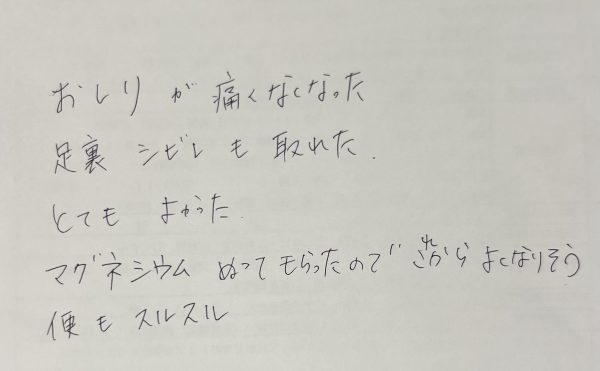 おしりが痛くなくなった
足裏シビレも取れた.
とてもよかった.
マグネシウムぬってもらったのでこれからよくなりそう
便もスルスル